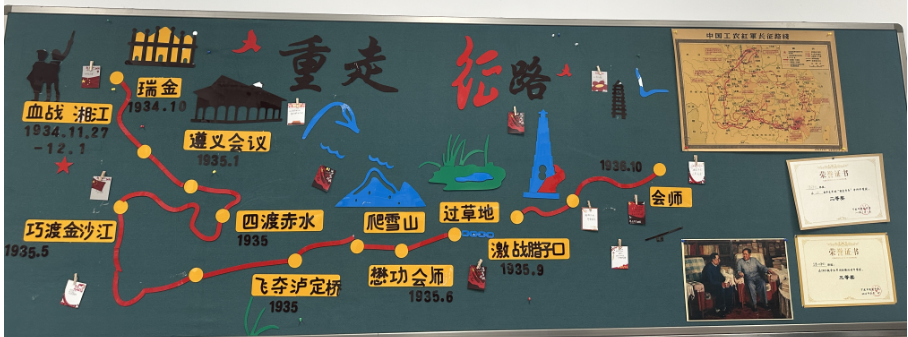 重走 征路
瑞金
1934.10
血战 湘江
1934.11.27
-12.1
遵义会议
1935.1
四渡赤水
1935
巧渡金沙江
1935.5
飞夺泸定桥
1935
爬雪山
懋功会师
1935.6
过草地
激战腊子口
1935.9
1936.10
会师
中国工农红军长征路线
荣誉证书
二等奖
荣誉证书